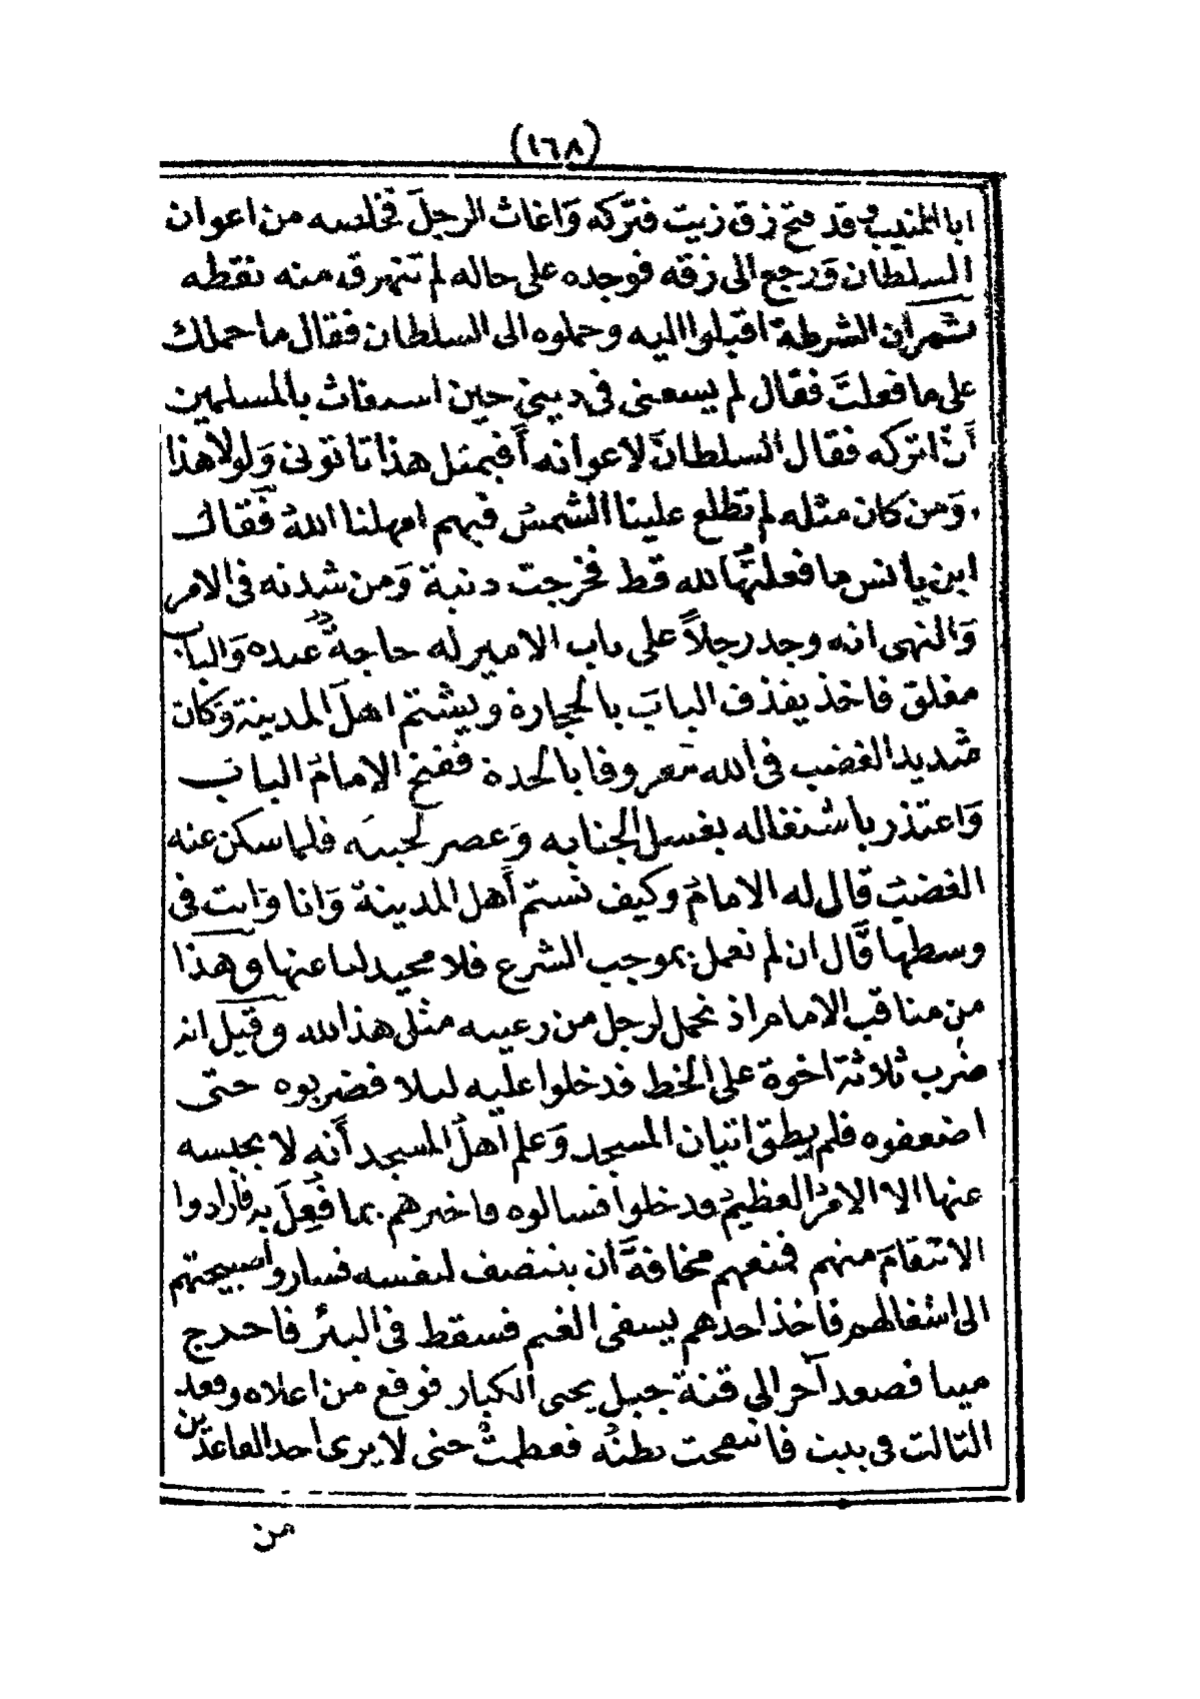 (١٦٨)
ابا المنيب وقد فتح زق زيت فتركه وَاغاث الرجلَ فخلصه من اعوان
السلطان وَرجع الى زقه فوجده على حاله لم تنهرق منه نقطه
ثم ان الشرطة اقبلوا اليه وحملوه الى السلطان فقال ما حملك
على ما فعلتَ فقال لم يسعنى فى دينى حين استغاث بالمسلمين
أنْ اتركه فقال السلطان لاعوانه أفبمثل هذا تاتونى وَلولا هذا
وَمن كان مثله لم تطلع علينا الشمسُ فبهم امهلنا اللهُ فقال
ابن يانس ما فعلتُها لله قط فخرجت دنية وَمن شدته فى الامر
وَالنهى انه وجد رجلاً على باب الامير له حاجةٌ عنده وَالباب
مغلق فاخذ يقذف البابَ بالحجارة ويشتم اهلَ المدينة وَكان
شديد الغضب فى الله معروفا بالحدة ففتح الإمامُ الباب
وَاعتذر باشتغاله بغسل الجنابه وَعصر لحيته فلما سكن عنه
الغضبُ قال له الامامُ وكيف تشتم أهل المدينة وَانا وَانت فى
وسطها قال ان لم نعمل بموجب الشرع فلا محيد لنا عنها وهذا
من مناقب الامام اذ تحمل لرجل من رعيته مثل هذا لله وقيل انه
ضرب ثلاثة اخوة على الخط فدخلوا عليه ليلا فضربوه حتى
اضعفوه فلم يطق اتيان المسجد وَعلم اهلُ المسجد أنه لا يحبسه
عنها الا الامرُ العظيمُ فدخلوا فسالوه فاخبرهم بما فُعِلَ به فارادوا
الانتقامَ منهم فمنعهم مخافةَ أن ينتصف لنفسه فساروا صبيحتهم
الى اشغالهم فاخذ احدهم يسقى الغنم فسقط فى البئر فاخرج
ميتا فصعد آخر الى قنة جبل يجنى الكبار فوقع من اعلاه وقعد
الثالث فى بيت فانتفخت بطنُه فعظمتْ حتى لا يرى احد القاعدين
من